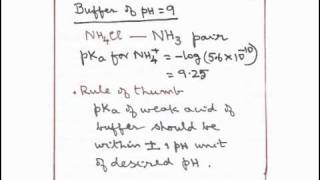 Buffer of pH = 9
NH₄Cl — NH₃ pair
pKa for NH₄⁺ = -log(5.6×10⁻¹⁰)
= 9.25
• Rule of thumb
pKa of weak acid of
buffer should be
within ± 1 pH unit
of desired pH.